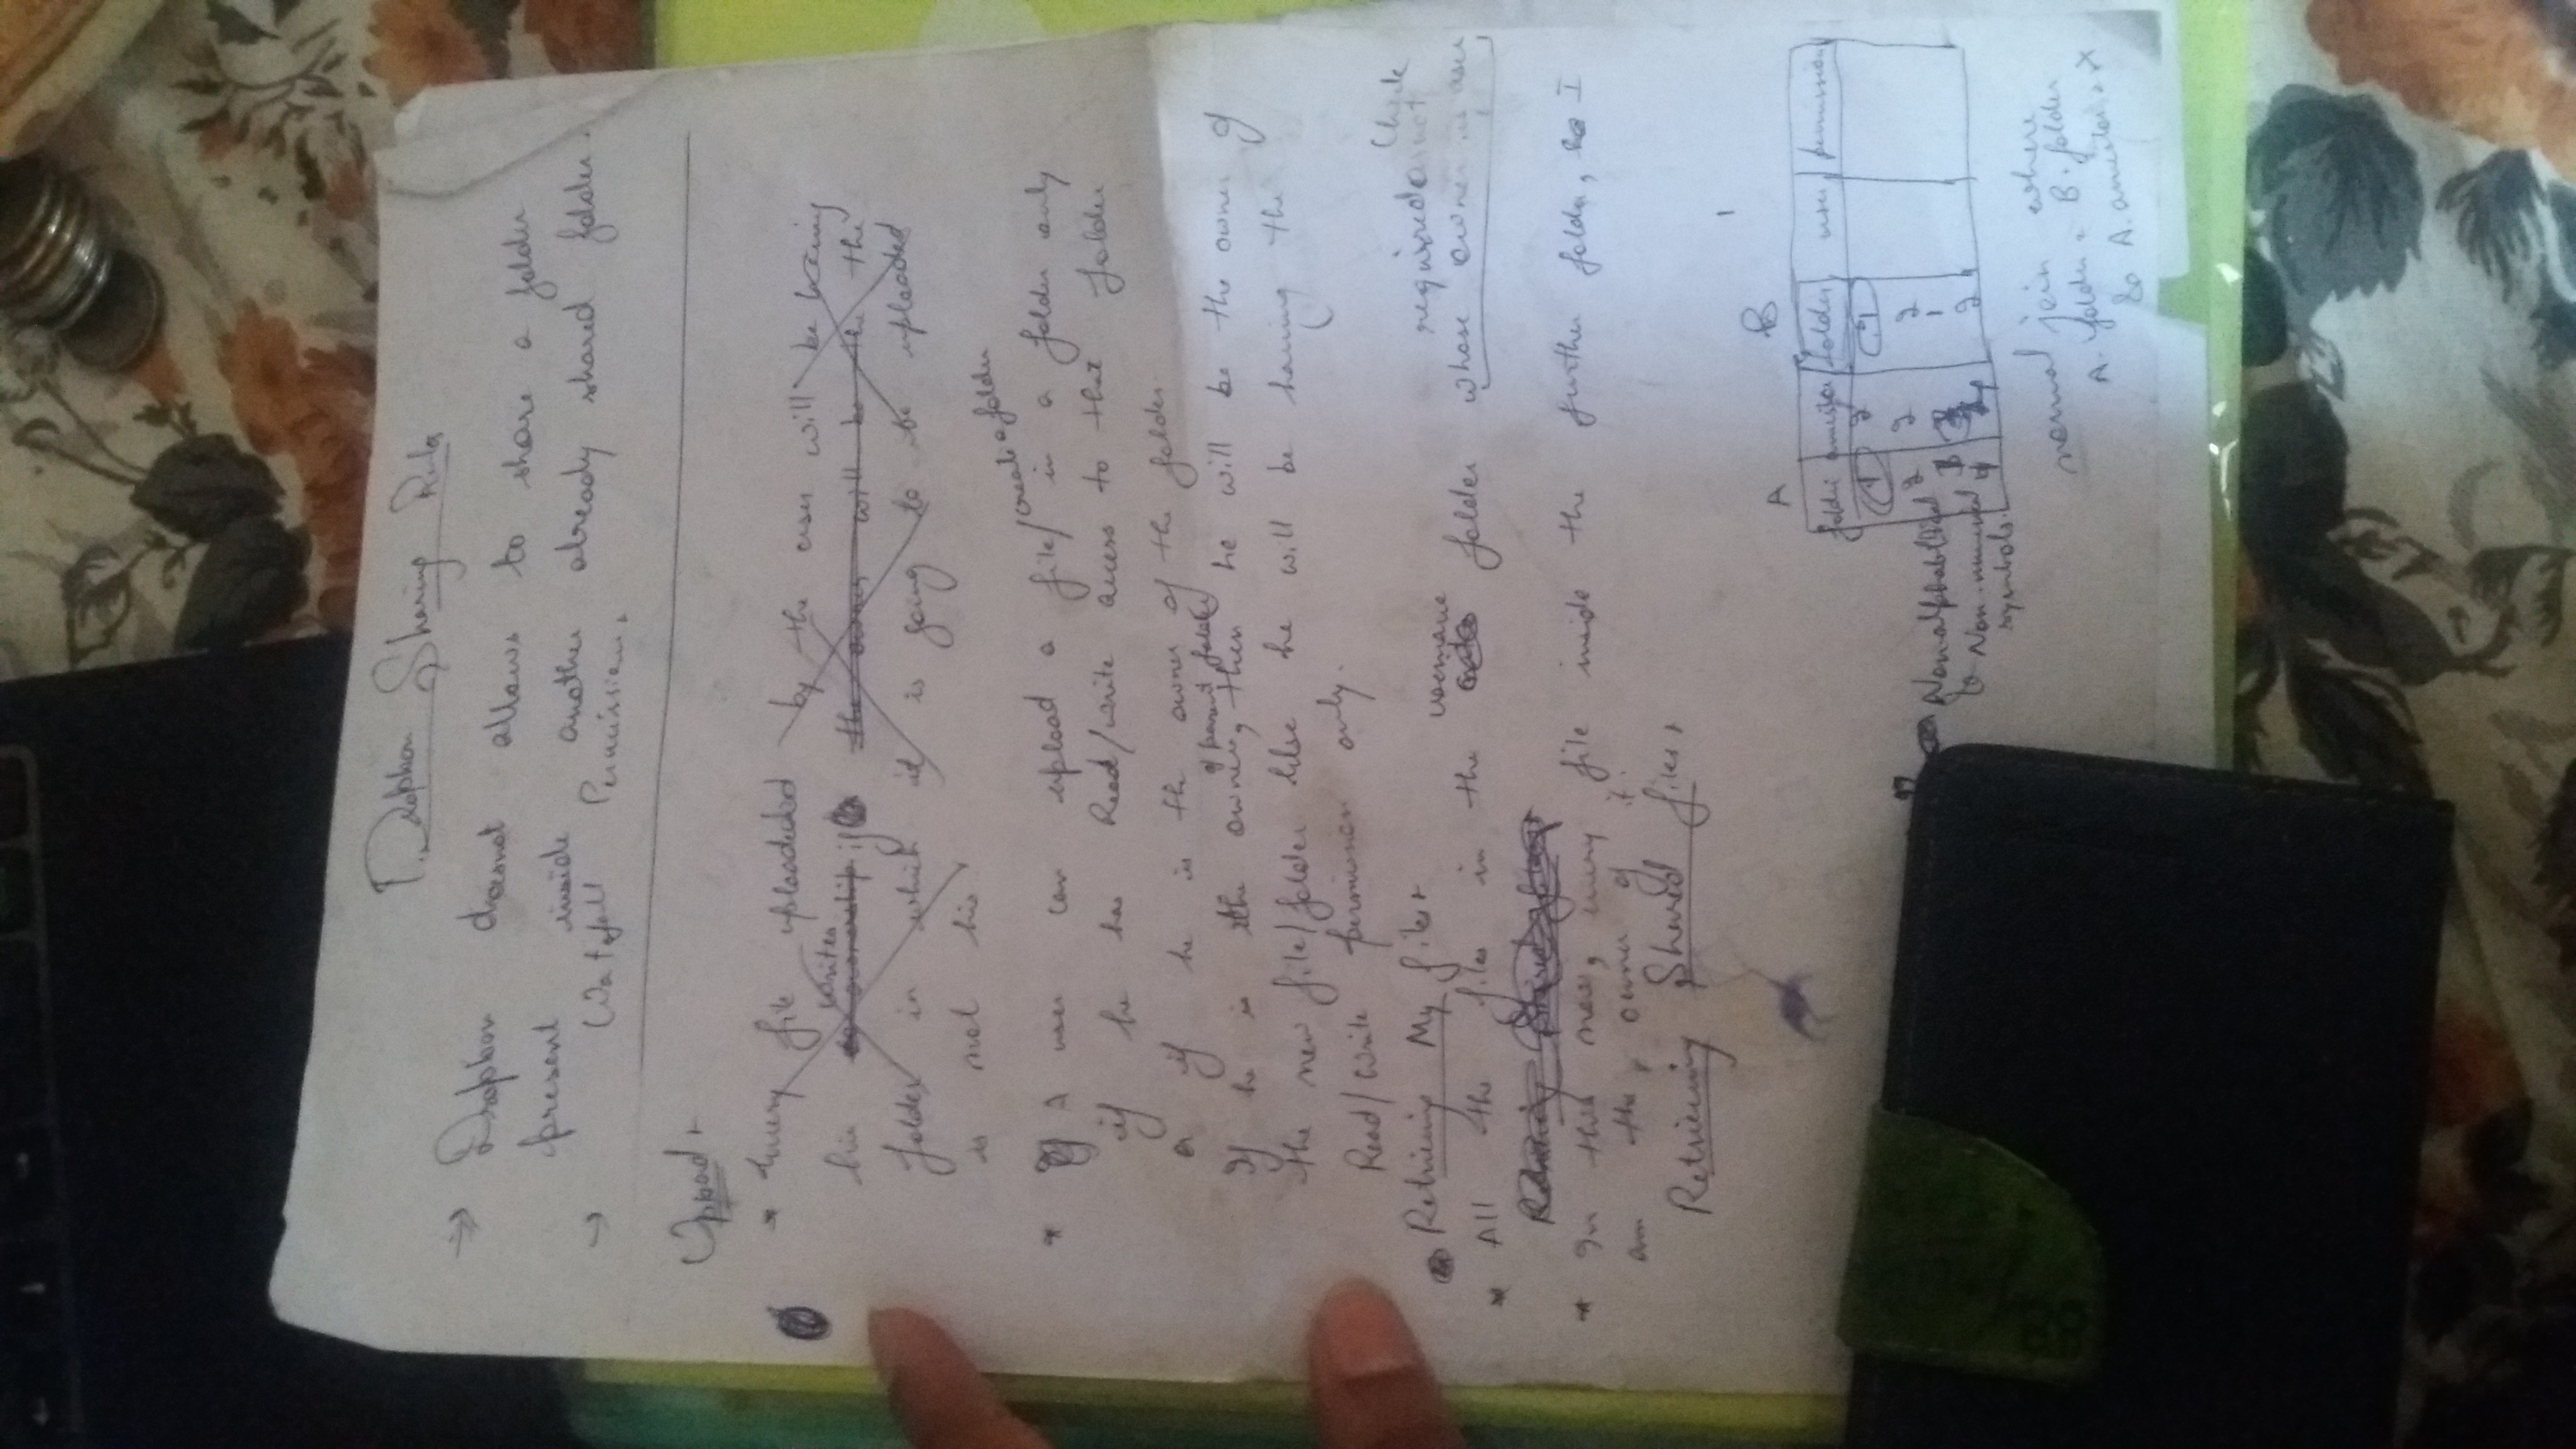 Dropbox Sharing Rules
Dropbox doesnot allows to share a folder
present inside another already shared folder.
Waterfall Permission.
Upload
* Every file uploadeded by the user will be having
his writes ownership if the owner will be the the
folder in which it is going to be uploaded
is not his
create a folder
* A user can upload a file/ in a folder only
if he has Read/write access to that folder
or if he is the owner of the folder.
of parent folder
If he is the owner, then he will be the owner of
the new file/folder else he will be having the
Read/Write permission only.
Retrieving My files
Check
required or not
username
* All the files in the folder whose owner is user
Retrieving Shared files
* In this new, every file inside the further folder, I
am the owner of it.
Retrieving Shared files
A B
folder ancestor folder user permission
1 2 1
2 2 2
1
4 2
Non alphabetical
& Non-numerical
symbols.
normal join where
A. folder = B. folder
& A. ancestor = X